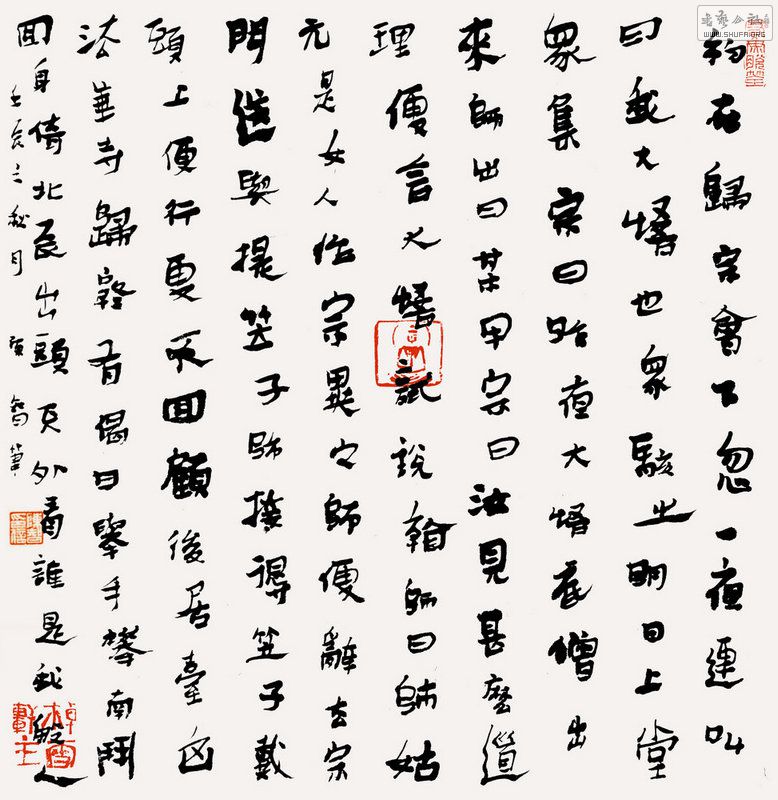 初在歸宗會下忽一夜連叫
曰我大悟也眾駭之明日上堂
眾集宗曰昨夜大悟底僧出
來師出曰某甲宗曰汝見甚麼道
理便言大悟試說看師曰師姑
元是女人作宗異之師便辭去宗
門送與提笠子師接得笠子戴
頭上便行更不回顧後居臺山
法華寺歸有偈曰舉手攀南鬥
回身倚北辰出頭天外看誰是我般人
壬辰之秋月智筆
WWW.SHUFA.ORG